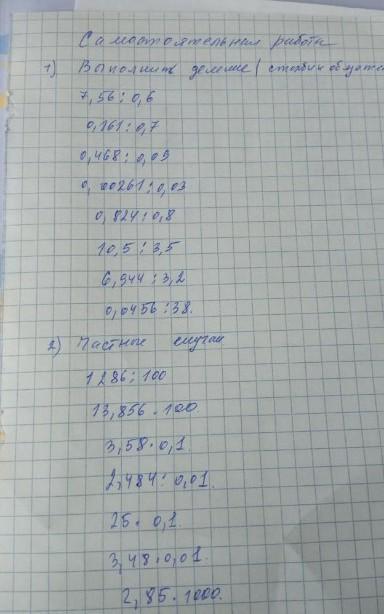 Самостоятельная работа
1) Выполнить деление (столбики обязател
7,56 : 0,6
0,161 : 0,7
0,468 : 0,09
0,00261 : 0,03
0,824 : 0,8
10,5 : 3,5
6,944 : 3,2
0,0456 : 38.
2) Частные случаи
1286 : 100
13,856 · 100.
3,58 · 0,1.
2,484 : 0,01.
25 · 0,1.
3,48 · 0,01.
2,85 · 1000.